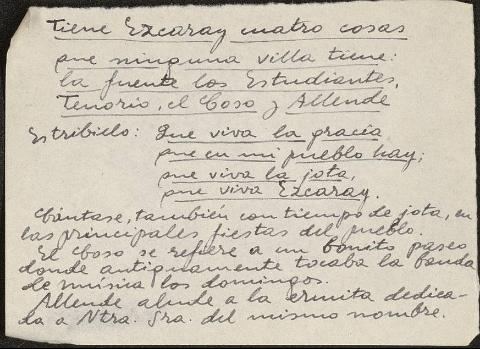 Tiene Ezcaray cuatro cosas
que ninguna villa tiene:
la fuente los Estudiantes,
Tenorio, el Coso y Allende
Estribillo: Que viva la gracia
que en mi pueblo hay;
que viva la jota,
que viva Ezcaray.
Cántase, también con tiempo de jota, en
las principales fiestas del pueblo.
El Coso se refiere a un bonito paseo
donde antiguamente tocaba la banda
de música los domingos.
Allende alude a la ermita dedica-
da a Ntra. Sra. del mismo nombre.